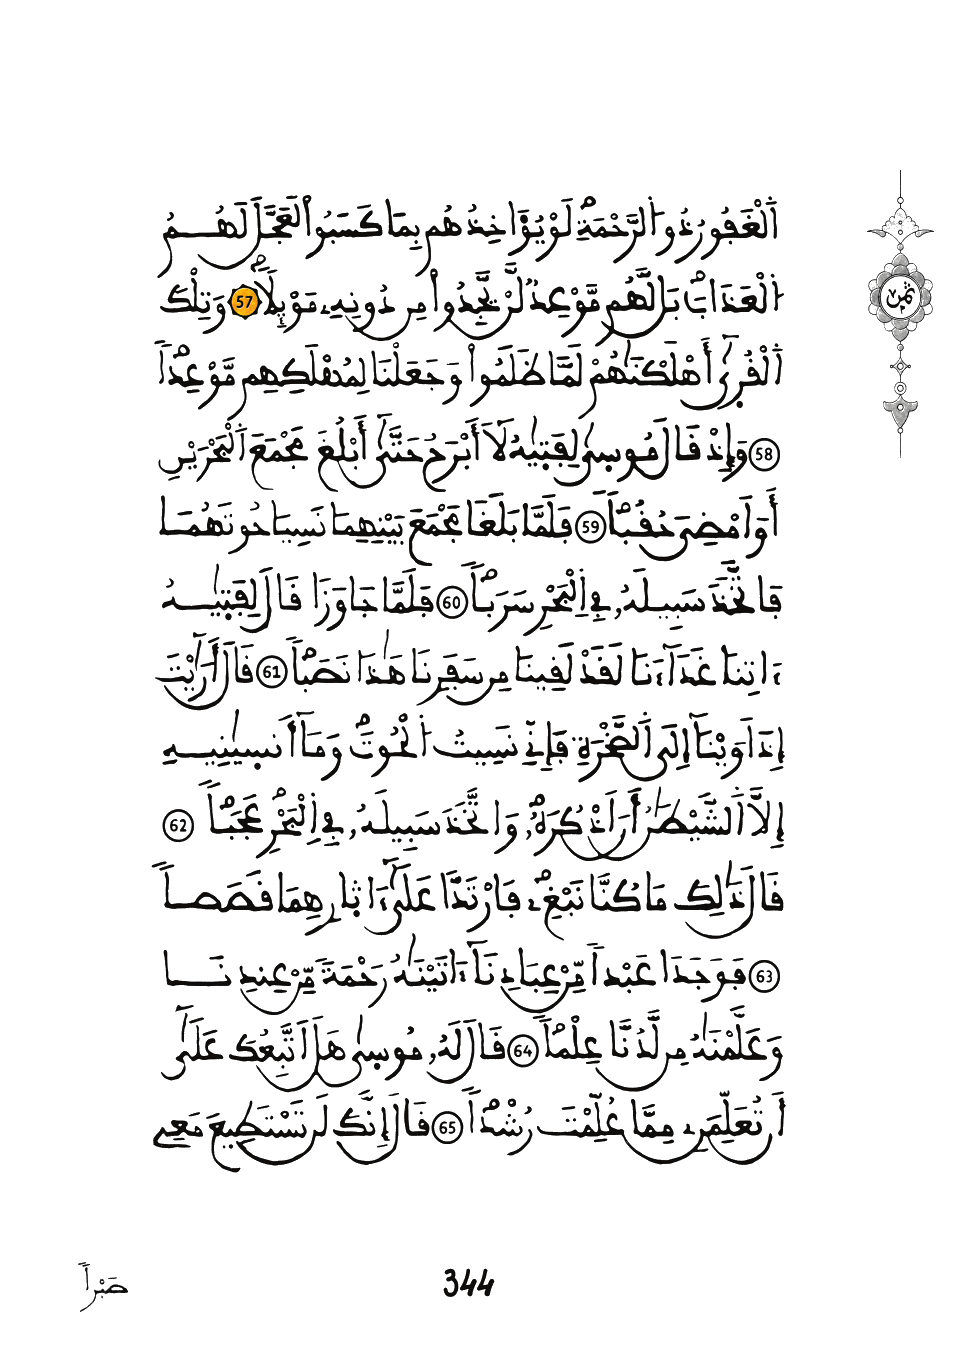 اَ۬لْغَفُورُ ذُو اُ۬لرَّحْمَةِۖ لَوْ يُؤَاخِذُهُم بِمَا كَسَبُواْ لَعَجَّلَ لَهُمُ
اُ۬لْعَذَابَۖ بَل لَّهُم مَّوْعِدٞ لَّنْ يَّجِدُواْ مِن دُونِهِۦ مَوْئِلاٗۖ 57 وَتِلْكَ
اَ۬لْقُر۪ىٰٓ أَهْلَكْنَٰهُمْ لَمَّا ظَلَمُواْ وَجَعَلْنَا لِمُهْلَكِهِم مَّوْعِداٗۖ
58 وَإِذْ قَالَ مُوس۪ىٰ لِفَت۪يٰهُ لَآ أَبْرَحُ حَتَّىٰٓ أَبْلُغَ مَجْمَعَ اَ۬لْبَحْرَيْنِ
أَوَ اَمْضِيَ حُقُباٗۖ 59 فَلَمَّا بَلَغَا مَجْمَعَ بَيْنِهِمَا نَسِيَا حُوتَهُمَا
فَاتَّخَذَ سَبِيلَهُۥ فِي اِ۬لْبَحْرِ سَرَباٗۖ 60 فَلَمَّا جَاوَزَا قَالَ لِفَت۪يٰهُ
ءَاتِنَا غَدَآءَنَا لَقَدْ لَقِينَا مِن سَفَرِنَا هَٰذَا نَصَباٗۖ 61 قَالَ أَرَٰٓيْتَ
إِذَ اَوَيْنَآ إِلَى اَ۬لصَّخْرَةِ فَإِنِّے نَسِيتُ اُ۬لْحُوتَۖ وَمَآ أَنس۪يٰنِيهِ
إِلَّا اَ۬لشَّيْطَٰنُ أَنَ اَذْكُرَهُۥۖ وَاتَّخَذَ سَبِيلَهُۥ فِي اِ۬لْبَحْرِۖ عَجَباٗۖ 62
قَالَ ذَٰلِكَ مَا كُنَّا نَبْغِۦۖ فَارْتَدَّا عَلَىٰٓ ءَاثٰ۪رِهِمَا قَصَصاٗ
63 فَوَجَدَا عَبْداٗ مِّنْ عِبَادِنَآ ءَاتَيْنَٰهُ رَحْمَةٗ مِّنْ عِندِنَا
وَعَلَّمْنَٰهُ مِن لَّدُنَّا عِلْماٗۖ 64 قَالَ لَهُۥ مُوس۪ىٰ هَلَ اَتَّبِعُكَ عَلَىٰٓ
أَن تُعَلِّمَنِۦ مِمَّا عُلِّمْتَ رُشْداٗۖ 65 قَالَ إِنَّكَ لَن تَسْتَطِيعَ مَعِي
ثمن
صَبْراٗ
344